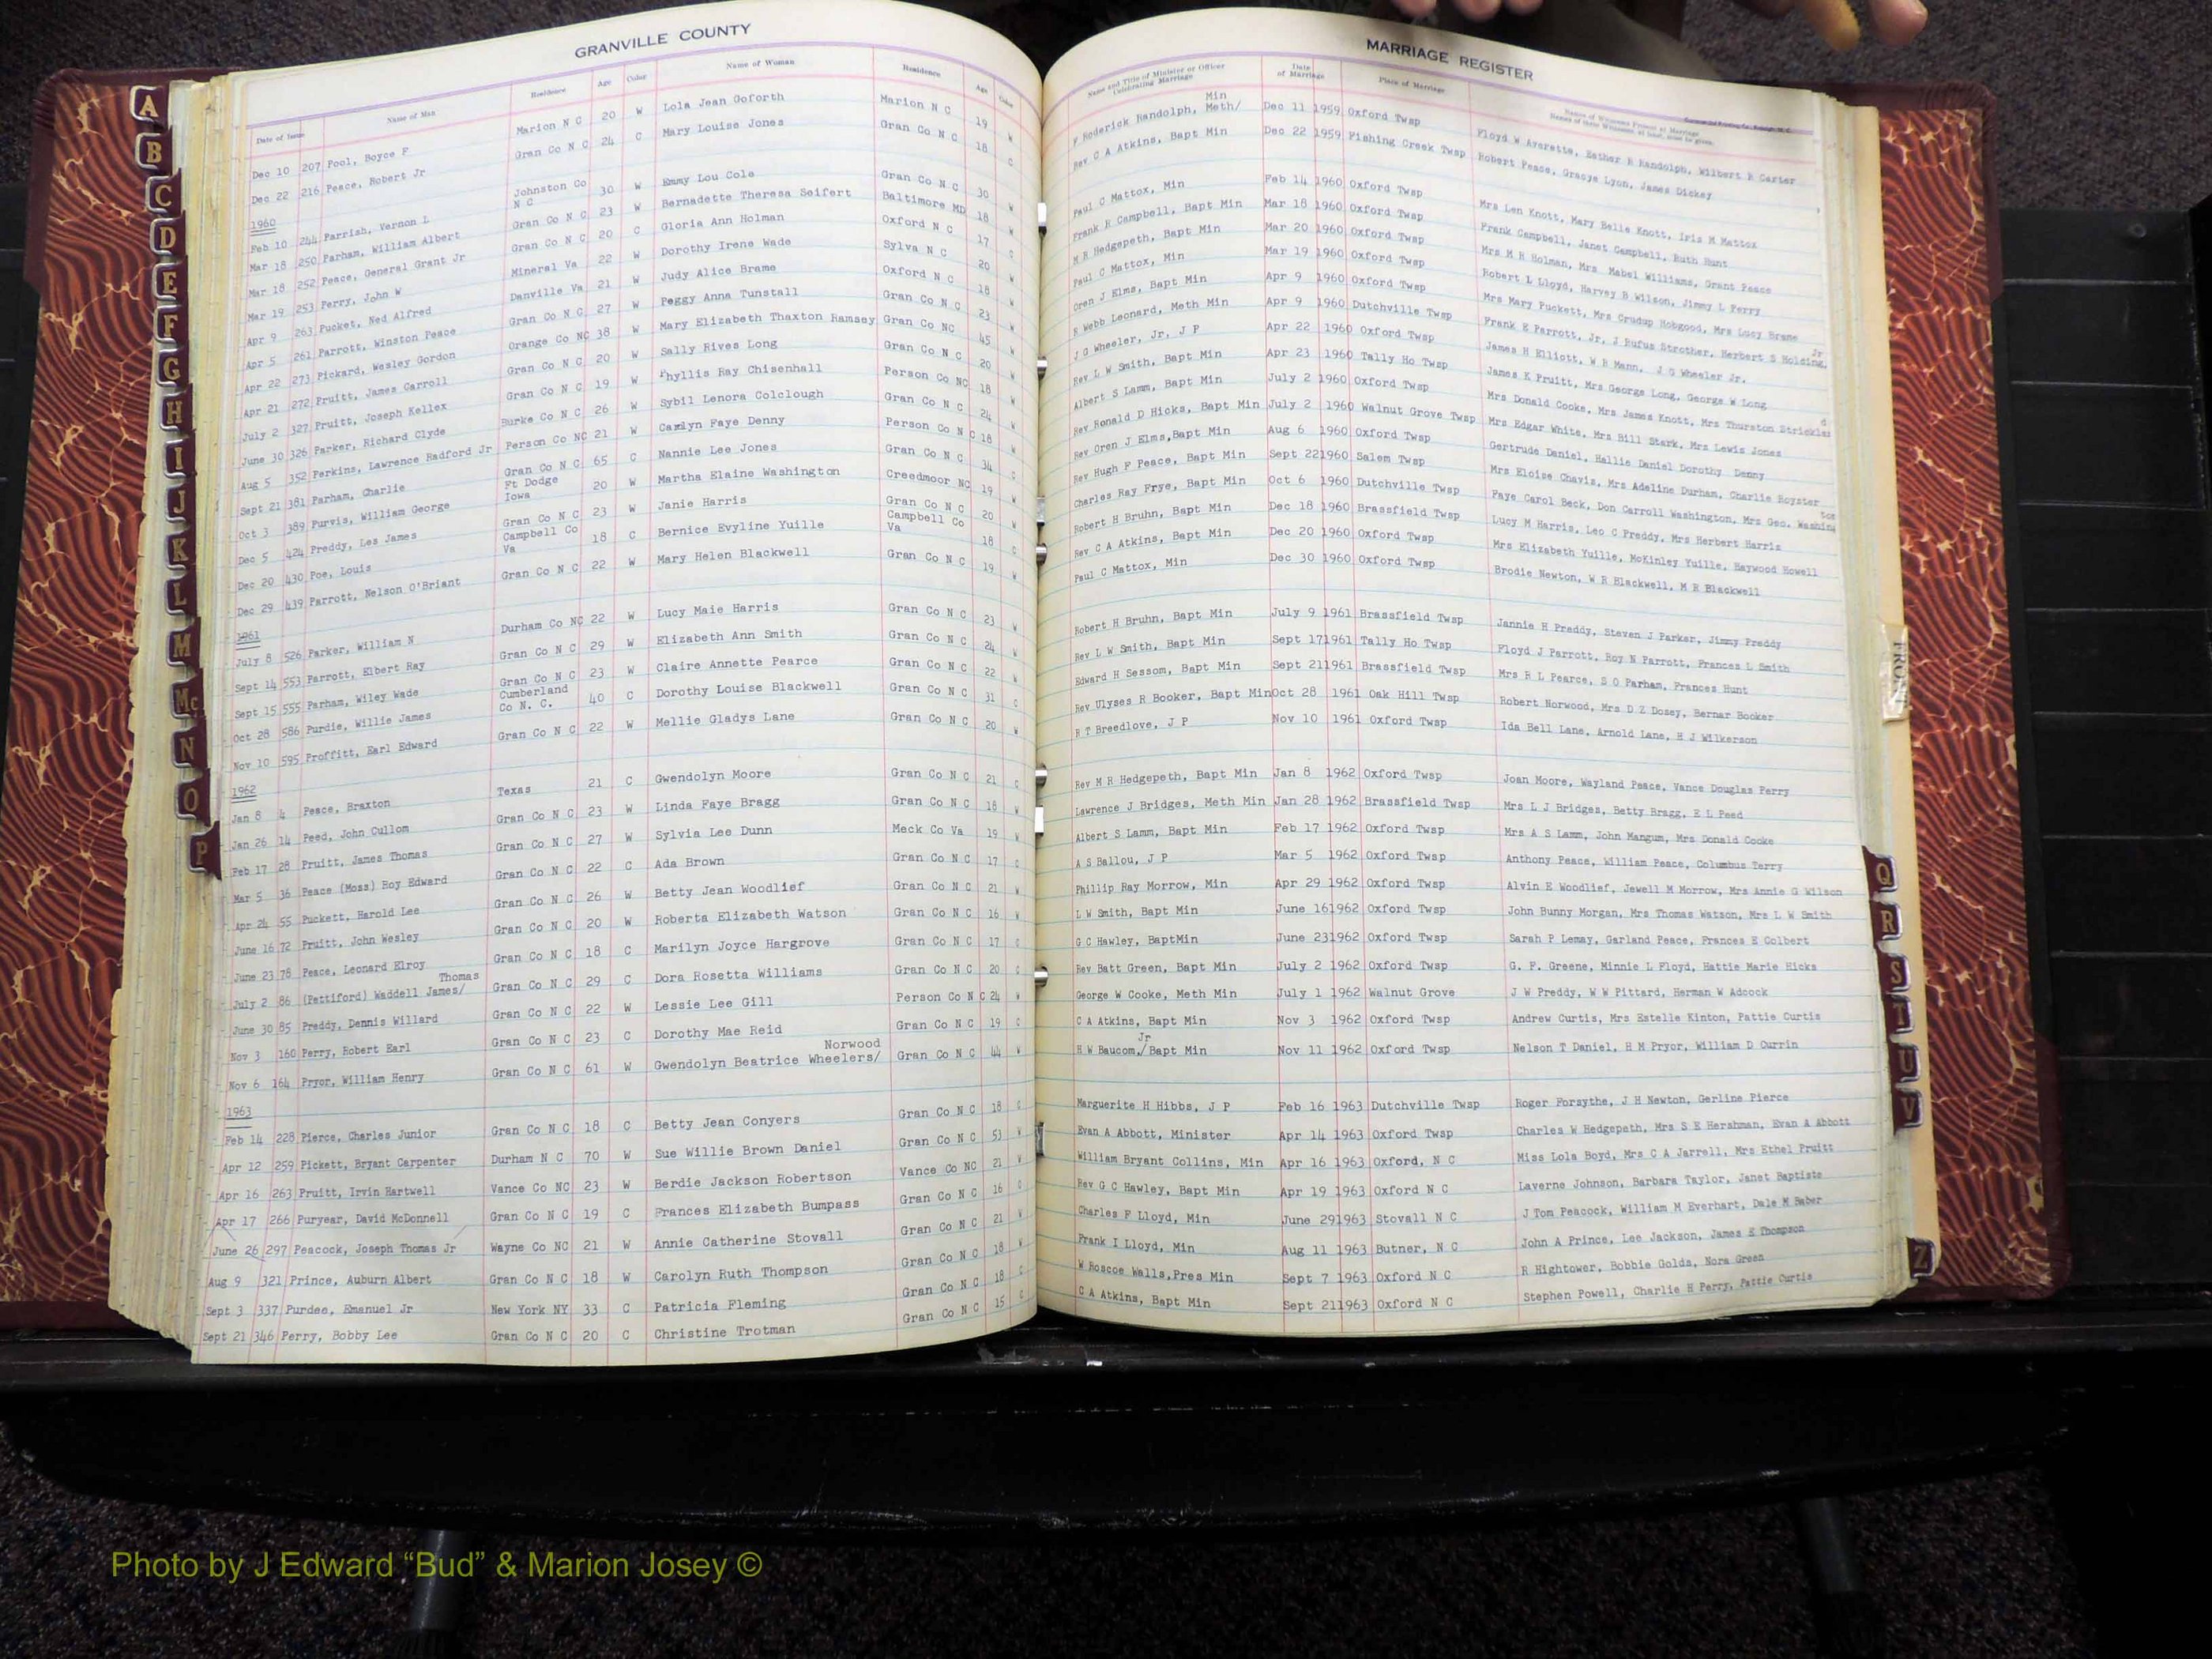 GRANVILLE COUNTY
MARRIAGE REGISTER
Date of Issue Name of Man Residence Age Color Name of Woman Residence Age Color Name and Title of Minister or Officer Celebrating Marriage Date of Marriage Place of Marriage
Dec 10 207 Pool, Boyce F Marion N C 20 W Lola Jean Goforth Marion N C 19 W F Roderick Randolph, Meth/ Min Dec 11 1959 Oxford Twsp Floyd W Averette, Esther R Randolph, Wilbert R Carter
Dec 22 216 Peace, Robert Jr Gran Co N C 24 C Mary Louise Jones Gran Co N C 18 C Rev C A Atkins, Bapt Min Dec 22 1959 Fishing Creek Twsp Robert Peace, Gracye Lyon, James Dickey
1960
Feb 10 244 Parrish, Vernon L Johnston Co N C 30 W Emmy Lou Cole Gran Co N C 30 W Paul C Mattox, Min Feb 14 1960 Oxford Twsp Mrs Len Knott, Mary Belle Knott, Iris M Mattox
Mar 18 250 Parham, William Albert Gran Co N C 23 W Bernadette Theresa Seifert Baltimore MD 18 W Frank R Campbell, Bapt Min Mar 18 1960 Oxford Twsp Frank Campbell, Janet Campbell, Ruth Hunt
Mar 18 252 Peace, General Grant Jr Gran Co N C 20 C Gloria Ann Holman Oxford N C 17 C M R Hedgepeth, Bapt Min Mar 20 1960 Oxford Twsp Mrs M R Holman, Mrs Mabel Williams, Grant Peace
Mar 19 253 Perry, John W Mineral Va 22 W Dorothy Irene Wade Sylva N C 20 W Paul C Mattox, Min Mar 19 1960 Oxford Twsp Robert L Lloyd, Harvey B Wilson, Jimmy L Perry
Apr 9 263 Pucket, Ned Alfred Danville Va 21 W Judy Alice Brame Oxford N C 18 W Oren J Elms, Bapt Min Apr 9 1960 Oxford Twsp Mrs Mary Puckett, Mrs Crudup Hobgood, Mrs Lucy Brame
Apr 5 261 Parrott, Winston Peace Gran Co N C 27 W Peggy Anna Tunstall Gran Co N C 23 W R Webb Leonard, Meth Min Apr 9 1960 Dutchville Twsp Frank E Parrott, Jr, J Rufus Strother, Herbert S Holding, Jr
Apr 22 273 Pickard, Wesley Gordon Orange Co NC 38 W Mary Elizabeth Thaxton Ramsey Gran Co NC 45 W J G Wheeler, Jr, J P Apr 22 1960 Oxford Twsp James H Elliott, W R Mann, J G Wheeler Jr.
Apr 21 272 Pruitt, James Carroll Gran Co N C 20 W Sally Rives Long Gran Co N C 20 W Rev L W Smith, Bapt Min Apr 23 1960 Tally Ho Twsp James K Pruitt, Mrs George Long, George W Long
July 2 327 Pruitt, Joseph Kellex Gran Co N C 19 W Phyllis Ray Chisenhall Person Co NC 18 W Albert S Lamm, Bapt Min July 2 1960 Oxford Twsp Mrs Donald Cooke, Mrs James Knott, Mrs Thurston Stricklan d
June 30 326 Parker, Richard Clyde Burke Co N C 26 W Sybil Lenora Colclough Gran Co N C 24 W Rev Ronald D Hicks, Bapt Min July 2 1960 Walnut Grove Twsp Mrs Edgar White, Mrs Bill Stark, Mrs Lewis Jones
Aug 5 352 Perkins, Lawrence Radford Jr Person Co NC 21 W Camlyn Faye Denny Person Co N C 18 W Rev Oren J Elms, Bapt Min Aug 6 1960 Oxford Twsp Gertrude Daniel, Hallie Daniel Dorothy Denny
Sept 21 381 Parham, Charlie Gran Co N C 65 C Nannie Lee Jones Gran Co N C 34 C Rev Hugh F Peace, Bapt Min Sept 22 1960 Salem Twsp Mrs Eloise Chavis, Mrs Adeline Durham, Charlie Royster
Oct 3 389 Purvis, William George Ft Dodge Iowa 20 W Martha Elaine Washington Creedmoor NC 19 W Charles Ray Frye, Bapt Min Oct 6 1960 Dutchville Twsp Faye Carol Beck, Don Carroll Washington, Mrs Geo. Washing ton
Dec 5 424 Preddy, Les James Gran Co N C 23 W Janie Harris Gran Co N C 20 W Robert H Bruhn, Bapt Min Dec 18 1960 Brassfield Twsp Lucy M Harris, Leo C Preddy, Mrs Herbert Harris
Dec 20 430 Poe, Louis Campbell Co Va 18 C Bernice Evyline Yuille Campbell Co Va 18 C Rev C A Atkins, Bapt Min Dec 20 1960 Oxford Twsp Mrs Elizabeth Yuille, McKinley Yuille, Haywood Howell
Dec 29 439 Parrott, Nelson O'Briant Gran Co N C 22 W Mary Helen Blackwell Gran Co N C 19 W Paul C Mattox, Min Dec 30 1960 Oxford Twsp Brodie Newton, W R Blackwell, M R Blackwell
1961
July 8 526 Parker, William N Durham Co NC 22 W Lucy Maie Harris Gran Co N C 23 W Robert H Bruhn, Bapt Min July 9 1961 Brassfield Twsp Jannie H Preddy, Steven J Parker, Jimmy Preddy
Sept 14 553 Parrott, Elbert Ray Gran Co N C 29 W Elizabeth Ann Smith Gran Co N C 24 W Rev L W Smith, Bapt Min Sept 17 1961 Tally Ho Twsp Floyd J Parrott, Roy N Parrott, Frances L Smith
Sept 15 555 Parham, Wiley Wade Gran Co N C 23 W Claire Annette Pearce Gran Co N C 22 W Edward H Sessom, Bapt Min Sept 21 1961 Brassfield Twsp Mrs R L Pearce, S O Parham, Frances Hunt
Oct 28 586 Purdie, Willie James Cumberland Co N. C. 40 C Dorothy Louise Blackwell Gran Co N C 31 C Rev Ulyses R Booker, Bapt Min Oct 28 1961 Oak Hill Twsp Robert Norwood, Mrs D Z Dosey, Bernar Booker
Nov 10 595 Proffitt, Earl Edward Gran Co N C 22 W Mellie Gladys Lane Gran Co N C 20 W R T Breedlove, J P Nov 10 1961 Oxford Twsp Ida Bell Lane, Arnold Lane, H J Wilkerson
1962
Jan 8 4 Peace, Braxton Texas 21 C Gwendolyn Moore Gran Co N C 21 C Rev M R Hedgepeth, Bapt Min Jan 8 1962 Oxford Twsp Joan Moore, Wayland Peace, Vance Douglas Perry
Jan 26 14 Peed, John Cullom Gran Co N C 23 W Linda Faye Bragg Gran Co N C 18 W Lawrence J Bridges, Meth Min Jan 28 1962 Brassfield Twsp Mrs L J Bridges, Betty Bragg, E L Peed
Feb 17 28 Pruitt, James Thomas Gran Co N C 27 W Sylvia Lee Dunn Meck Co Va 19 W Albert S Lamm, Bapt Min Feb 17 1962 Oxford Twsp Mrs A S Lamm, John Mangum, Mrs Donald Cooke
Mar 5 36 Peace (Moss) Roy Edward Gran Co N C 22 C Ada Brown Gran Co N C 17 C A S Ballou, J P Mar 5 1962 Oxford Twsp Anthony Peace, William Peace, Columbus Terry
Apr 24 55 Puckett, Harold Lee Gran Co N C 26 W Betty Jean Woodlief Gran Co N C 21 W Phillip Ray Morrow, Min Apr 29 1962 Oxford Twsp Alvin E Woodlief, Jewell M Morrow, Mrs Annie G Wilson
June 16 72 Pruitt, John Wesley Gran Co N C 20 W Roberta Elizabeth Watson Gran Co N C 16 W L W Smith, Bapt Min June 16 1962 Oxford Twsp John Bunny Morgan, Mrs Thomas Watson, Mrs L W Smith
June 23 78 Peace, Leonard Elroy Gran Co N C 18 C Marilyn Joyce Hargrove Gran Co N C 17 C G C Hawley, BaptMin June 23 1962 Oxford Twsp Sarah P Lemay, Garland Peace, Frances E Colbert
July 2 86 (Pettiford) Waddell James/ Thomas Gran Co N C 29 C Dora Rosetta Williams Gran Co N C 20 C Rev Batt Green, Bapt Min July 2 1962 Oxford Twsp G. F. Greene, Minnie L Floyd, Hattie Marie Hicks
June 30 85 Preddy, Dennis Willard Gran Co N C 22 W Lessie Lee Gill Person Co N C 24 W George W Cooke, Meth Min July 1 1962 Walnut Grove J W Preddy, W W Pittard, Herman W Adcock
Nov 3 160 Perry, Robert Earl Gran Co N C 23 C Dorothy Mae Reid Gran Co N C 19 C C A Atkins, Bapt Min Nov 3 1962 Oxford Twsp Andrew Curtis, Mrs Estelle Kinton, Pattie Curtis
Nov 6 164 Pryor, William Henry Gran Co N C 61 W Gwendolyn Beatrice Wheelers/ Norwood Gran Co N C 44 W H W Baucom,/ Jr Bapt Min Nov 11 1962 Oxford Twsp Nelson T Daniel, H M Pryor, William D Currin
1963
Feb 14 228 Pierce, Charles Junior Gran Co N C 18 C Betty Jean Conyers Gran Co N C 18 C Marguerite H Hibbs, J P Feb 16 1963 Dutchville Twsp Roger Forsythe, J H Newton, Gerline Pierce
Apr 12 259 Pickett, Bryant Carpenter Durham N C 70 W Sue Willie Brown Daniel Gran Co N C 53 W Evan A Abbott, Minister Apr 14 1963 Oxford Twsp Charles W Hedgepeth, Mrs S E Hershman, Evan A Abbott
Apr 16 263 Pruitt, Irvin Hartwell Vance Co NC 23 W Berdie Jackson Robertson Vance Co NC 21 W William Bryant Collins, Min Apr 16 1963 Oxford, N C Miss Lola Boyd, Mrs C A Jarrell, Mrs Ethel Pruitt
Apr 17 266 Puryear, David McDonnell Gran Co N C 19 C Frances Elizabeth Bumpass Gran Co N C 16 C Rev G C Hawley, Bapt Min Apr 19 1963 Oxford N C Laverne Johnson, Barbara Taylor, Janet Baptiste
June 26 297 Peacock, Joseph Thomas Jr Wayne Co NC 21 W Annie Catherine Stovall Gran Co N C 21 W Charles F Lloyd, Min June 29 1963 Stovall N C J Tom Peacock, William M Everhart, Dale M Baber
Aug 9 321 Prince, Auburn Albert Gran Co N C 18 W Carolyn Ruth Thompson Gran Co N C 18 W Frank I Lloyd, Min Aug 11 1963 Butner, N C John A Prince, Lee Jackson, James E Thompson
Sept 3 337 Purdee, Emanuel Jr New York NY 33 C Patricia Fleming Gran Co N C 18 C W Roscoe Walls, Pres Min Sept 7 1963 Oxford N C R Hightower, Bobbie Golds, Nora Green
Sept 21 346 Perry, Bobby Lee Gran Co N C 20 C Christine Trotman Gran Co N C 15 C C A Atkins, Bapt Min Sept 21 1963 Oxford N C Stephen Powell, Charlie H Perry, Pattie Curtis
A
B
C
D
E
F
G
H
I
J
K
L
M
Mc
N
O
P
Q
R
S
T
U
V
Z
Photo by J Edward “Bud” & Marion Josey ©